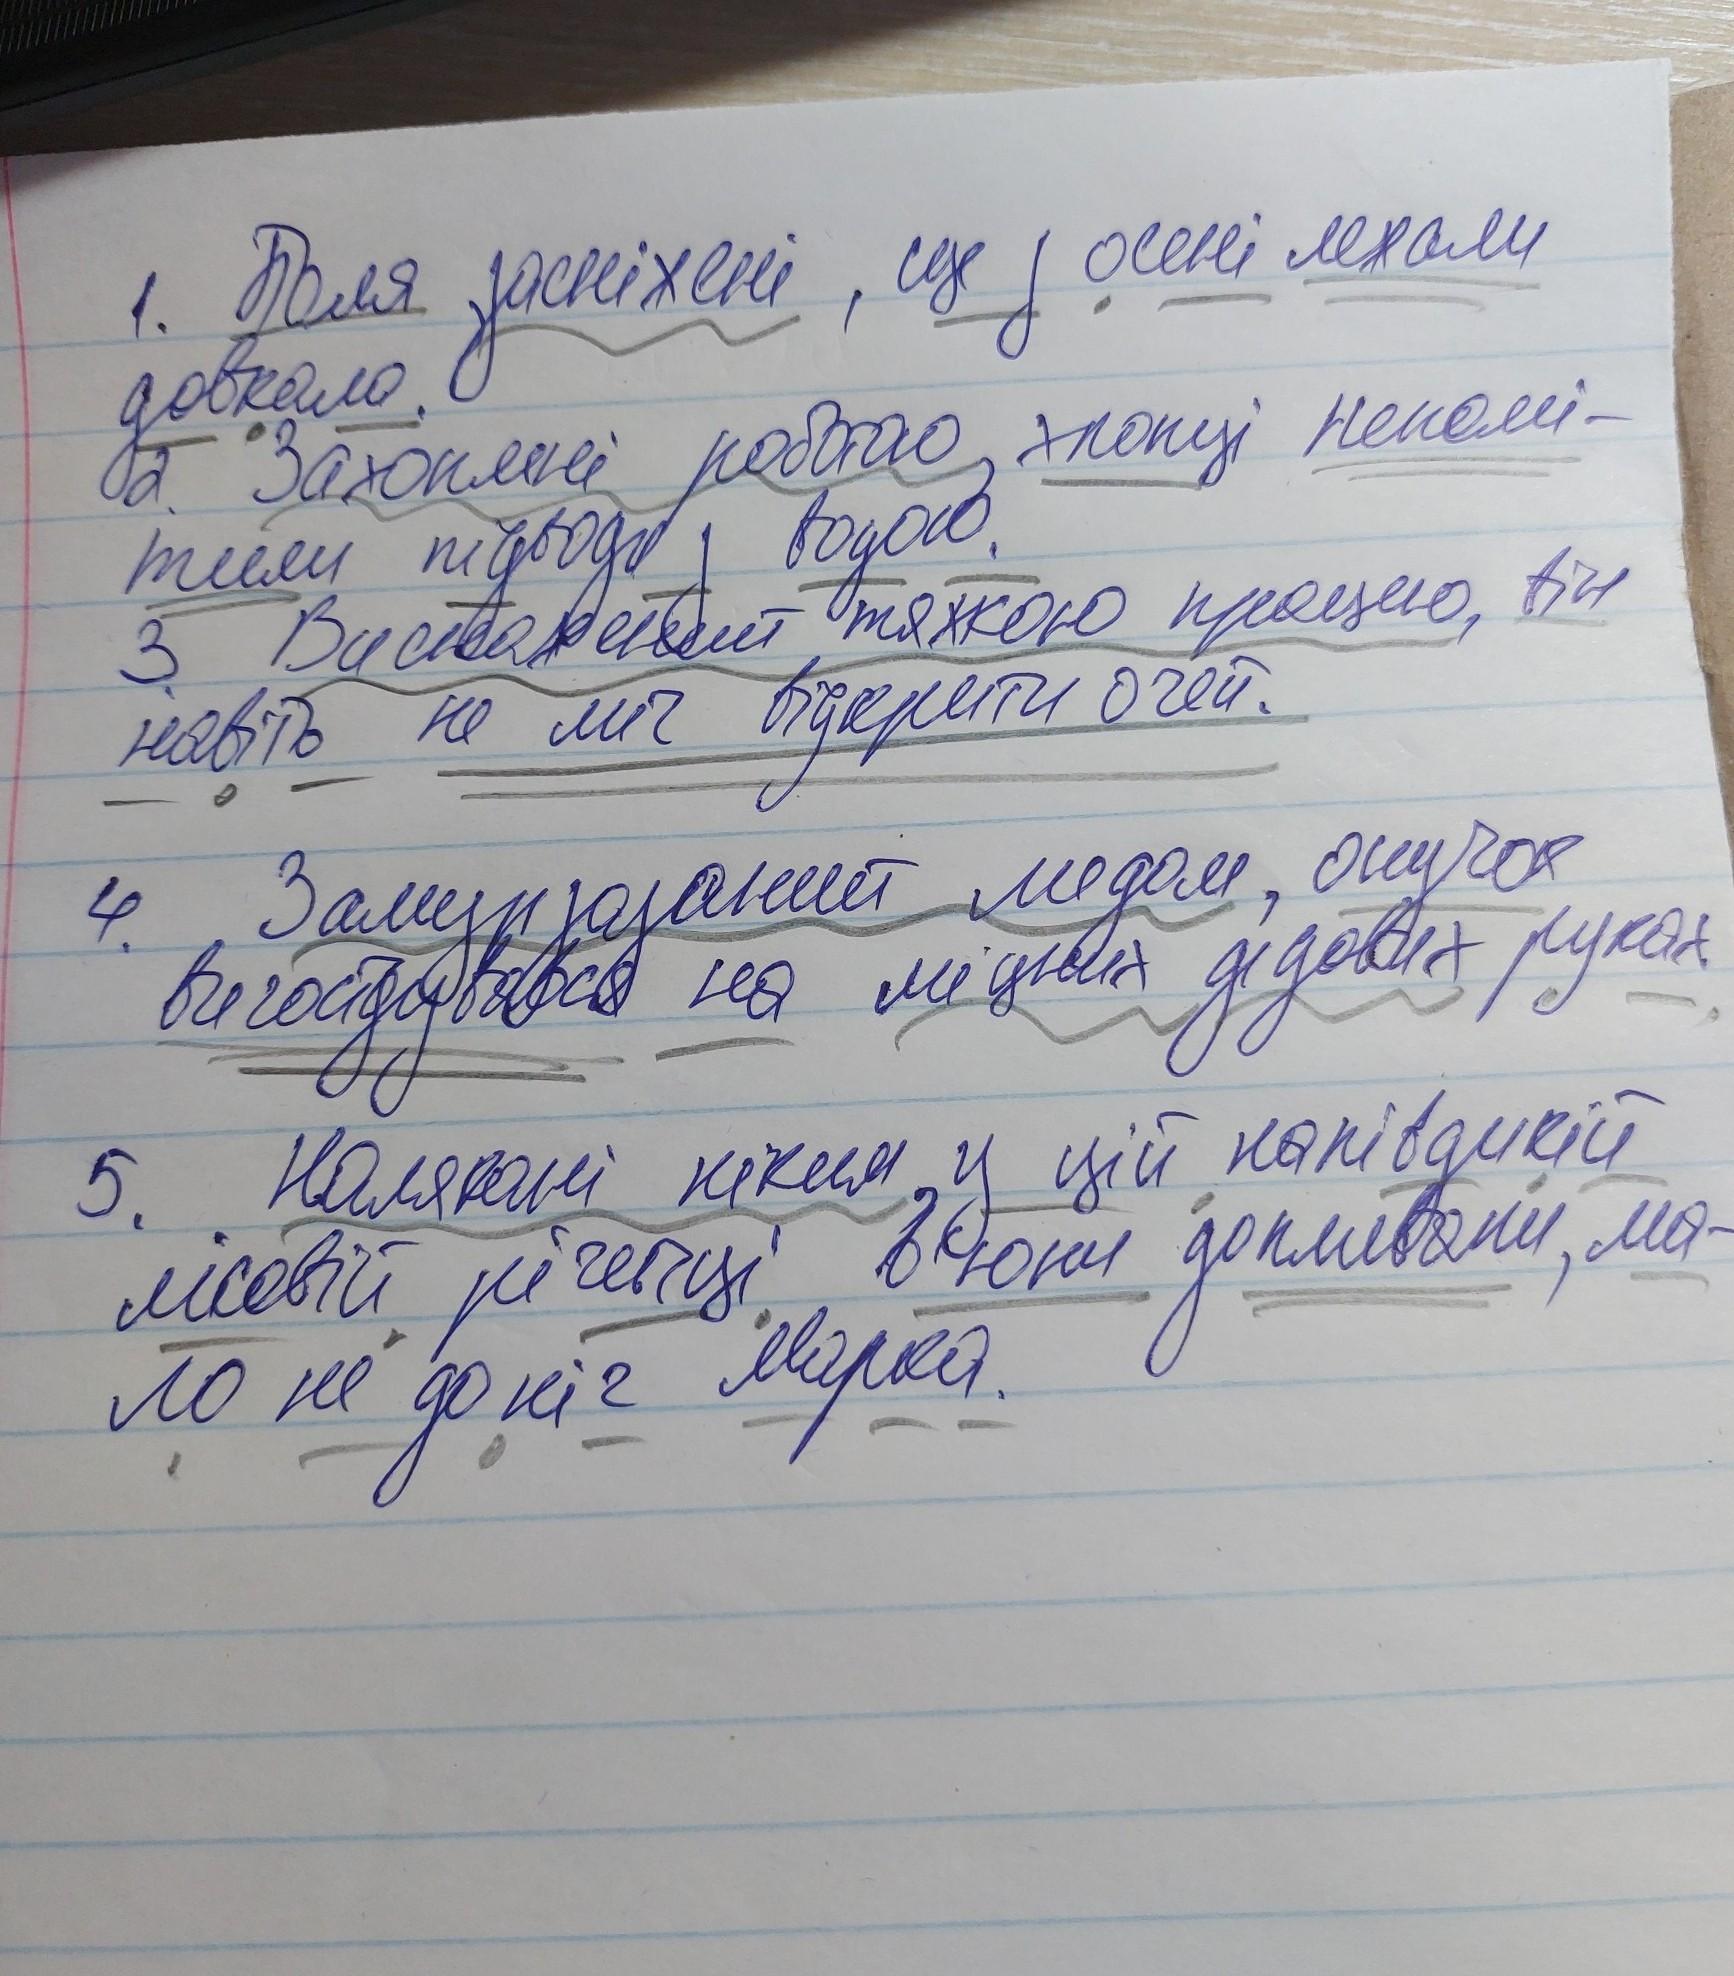 1. Поля засніжені, ще з осені лежали
довкола.
2. Захоплені роботою, хлопці непомі-
тили підводу з водою.
3. Виснажений тяжкою працею, він
навіть не міг відкрити очей.
4. Замурзаний медом, онучок
вигойдувався на міцних дідових руках.
5. Налякані кимм у цій напівдикій
лісовій річечці в'юни допливали, ма-
ло не до ніг Марка.